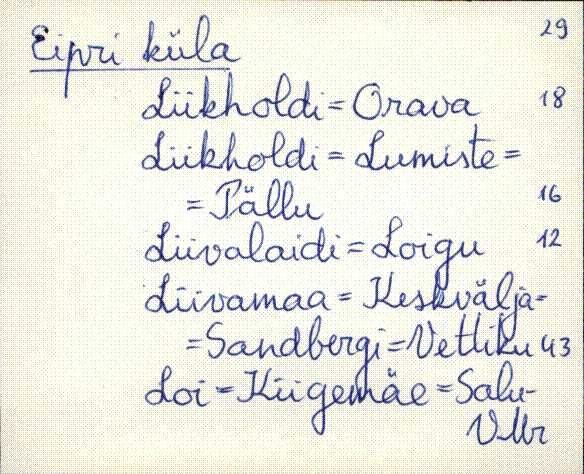 Eipri küla 29
Liikholdi = Orava 18
Liikholdi = Lumiste =
= Pällu 16
Liivalaidi = Loigu 12
Liivamaa = Keskvälja-
= Sandbergi = Vetliku 43
Loi = Kiigemäe = Salu-